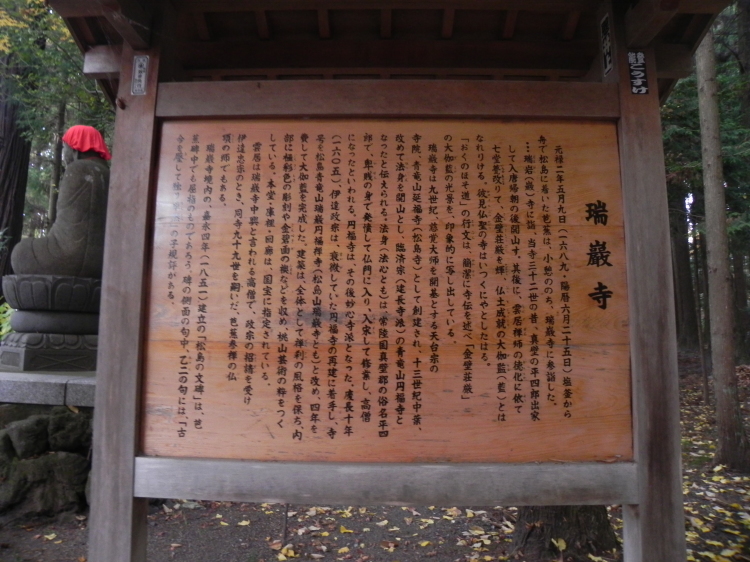 瑞巌寺
元禄二年五月九日(一六八九、陽暦六月二十五日)塩釜から
舟で松島に着いた芭蕉は、小憩ののち、瑞巌寺に参詣した。
…瑞岩(巌)寺に詣、当寺三十二世の昔、真壁の平四郎出家
して入唐帰朝の後開山す。其後に、雲居禅師の徳化に依て
七堂甍改りて、金壁荘厳光を輝、仏土成就の大伽藍(藍)とは
なれりける。彼見仏聖の寺はいづくにやとしたはる。
「おくのほそ道」の行文は、簡潔に寺伝を述べ「金壁荘厳」
の大伽藍の光景を、印象的に写し出している。
瑞巌寺は九世紀、慈覚大師を開基とする天台宗の
寺院、青竜山延福寺(松島寺)として創建され、十三世紀中葉、
改めて法身を開山とし、臨済宗(建長寺派)の青竜山円福寺と
なったと伝えられる。法身(法心とも)は、常陸国真壁郡の俗名平四
郎で、卑賎の身で発憤して仏門に入り、入宋して修業し、高僧
になったといわれる。円福寺は、その後妙心寺派となった。慶長十年
(一六〇五)、伊達政宗は、衰微していた円福寺の再建に着手し、寺
号を松島青竜山瑞巌円福禅寺(松島山瑞巌寺とも)と改め、四年を
費して大伽藍を完成した。建築は、全体として禅刹の風格を保ち、内
部は極彩色の彫刻や金碧画の襖などを収め、桃山芸術の粋をつく
している。本堂・庫裡・回廊は、国宝に指定されている。
雲居は瑞巌寺中興と言われる高僧で、政宗の招請を受け
伊達忠宗のとき、同寺九十九世を嗣いだ、芭蕉参禅の仏
頂の師でもある。
瑞巌寺境内の、嘉永四年(一八五一)建立の「松島の文碑」は、芭
蕉碑中でも屈指のものであろう。碑の側面の句中、乙二の句には、「古
の子規
がある。
こうすけ